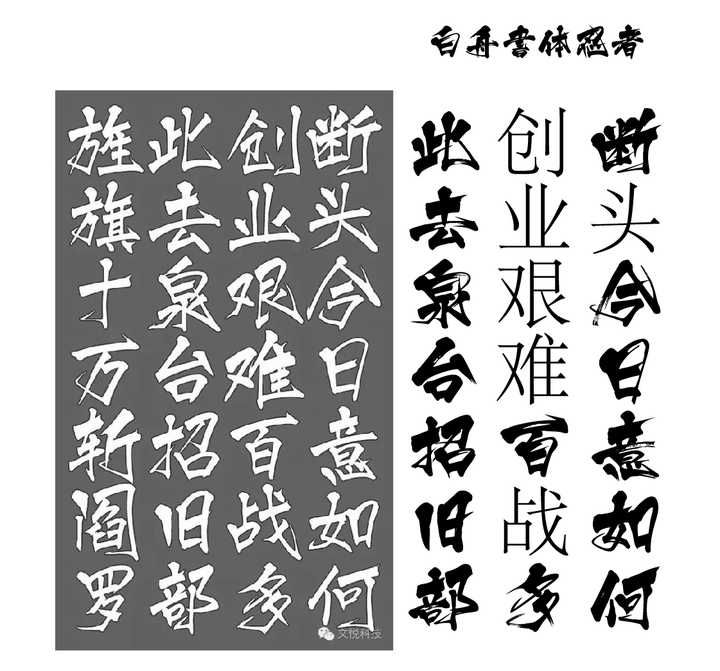 白舟書体忍者
断头今日意如何
创业艰难百战多
此去泉台招旧部
旌旗十万斩阎罗
文悦科技
断头今日意如何
创业艰难百战多
此去泉台招旧部